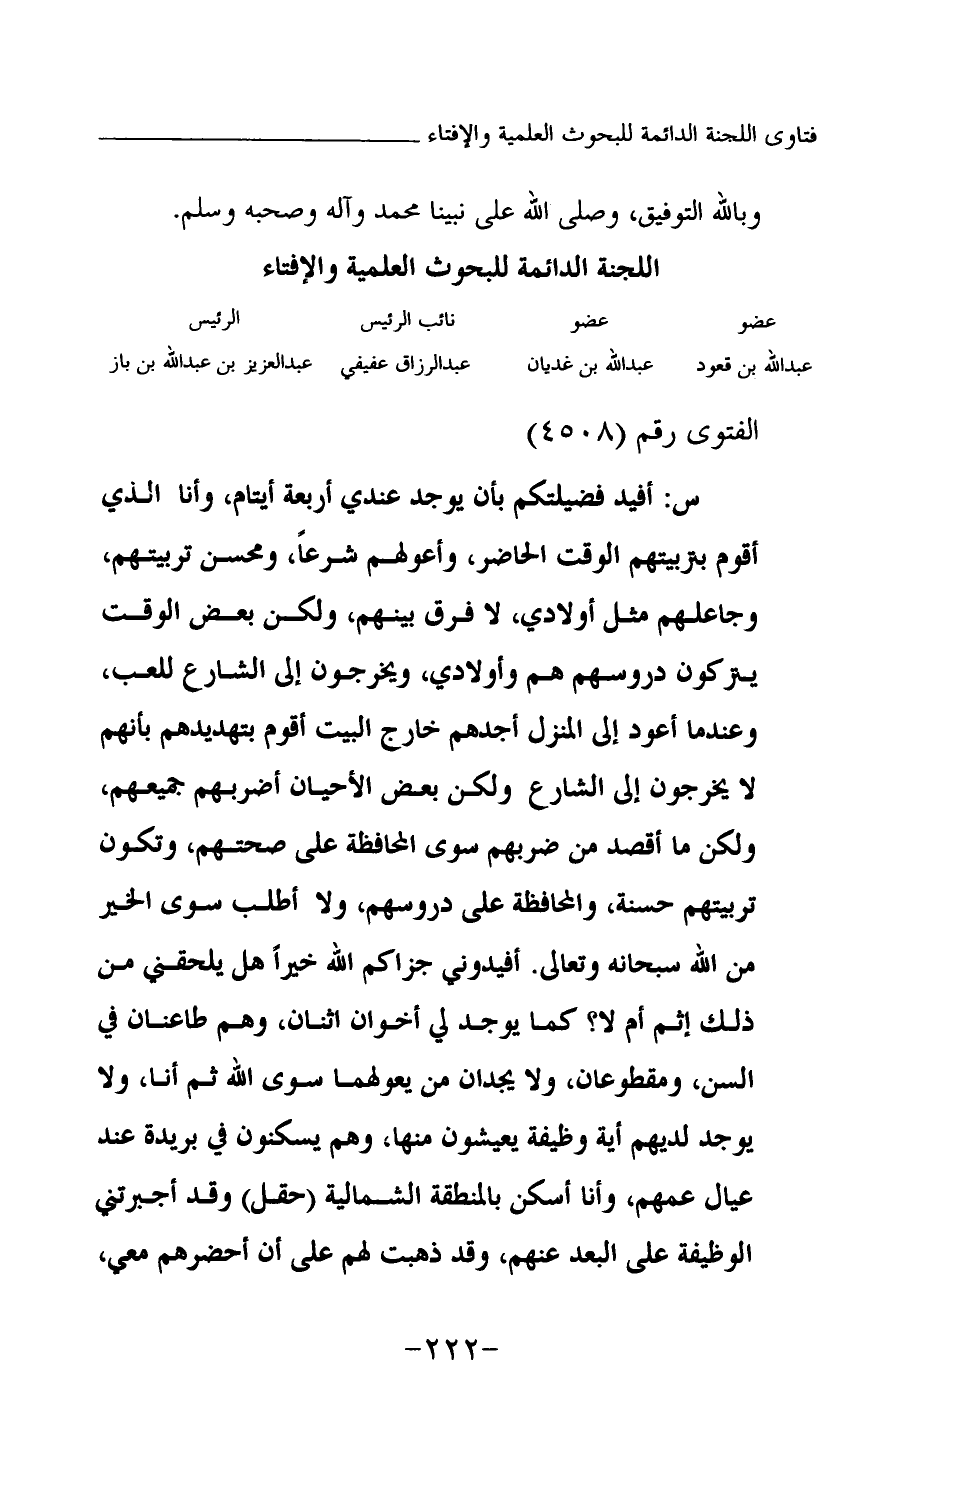 فتاوى اللجنة الدائمة للبحوث العلمية والإفتاء
وبالله التوفيق، وصلى الله على نبينا محمد وآله وصحبه وسلم.
اللجنة الدائمة للبحوث العلمية والإفتاء
عضو عضو نائب الرئيس الرئيس
عبدالله بن قعود عبدالله بن غديان عبدالرزاق عفيفي عبدالعزيز بن عبدالله بن باز
الفتوى رقم (٤٥٠٨)
س: أفيد فضيلتكم بأن يوجد عندي أربعة أيتام، وأنا الذي
أقوم بتربيتهم الوقت الحاضر، وأعولهم شرعاً، ومحسن تربيتهم،
وجاعلهم مثل أولادي، لا فرق بينهم، ولكن بعض الوقت
يتركون دروسهم هم وأولادي، ويخرجون إلى الشارع للعب،
وعندما أعود إلى المنزل أجدهم خارج البيت أقوم بتهديدهم بأنهم
لا يخرجون إلى الشارع ولكن بعض الأحيان أضربهم جميعهم،
ولكن ما أقصد من ضربهم سوى المحافظة على صحتهم، وتكون
تربيتهم حسنة، والمحافظة على دروسهم، ولا أطلب سوى الخير
من الله سبحانه وتعالى. أفيدوني جزاكم الله خيراً هل يلحقني من
ذلك إثم أم لا؟ كما يوجد لي أخوان اثنان، وهم طاعنان في
السن، ومقطوعان، ولا يجدان من يعولهما سوى الله ثم أنا، ولا
يوجد لديهم أية وظيفة يعيشون منها، وهم يسكنون في بريدة عند
عيال عمهم، وأنا أسكن بالمنطقة الشمالية (حقل) وقد أجبرتني
الوظيفة على البعد عنهم، وقد ذهبت لهم على أن أحضرهم معي،
-٢٢٢-